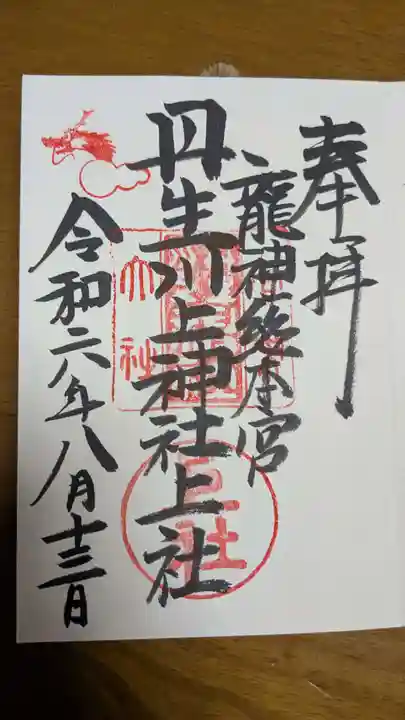 奉拝
龍神総本宮
丹生川上神社上社
令和六年八月十三日
上社